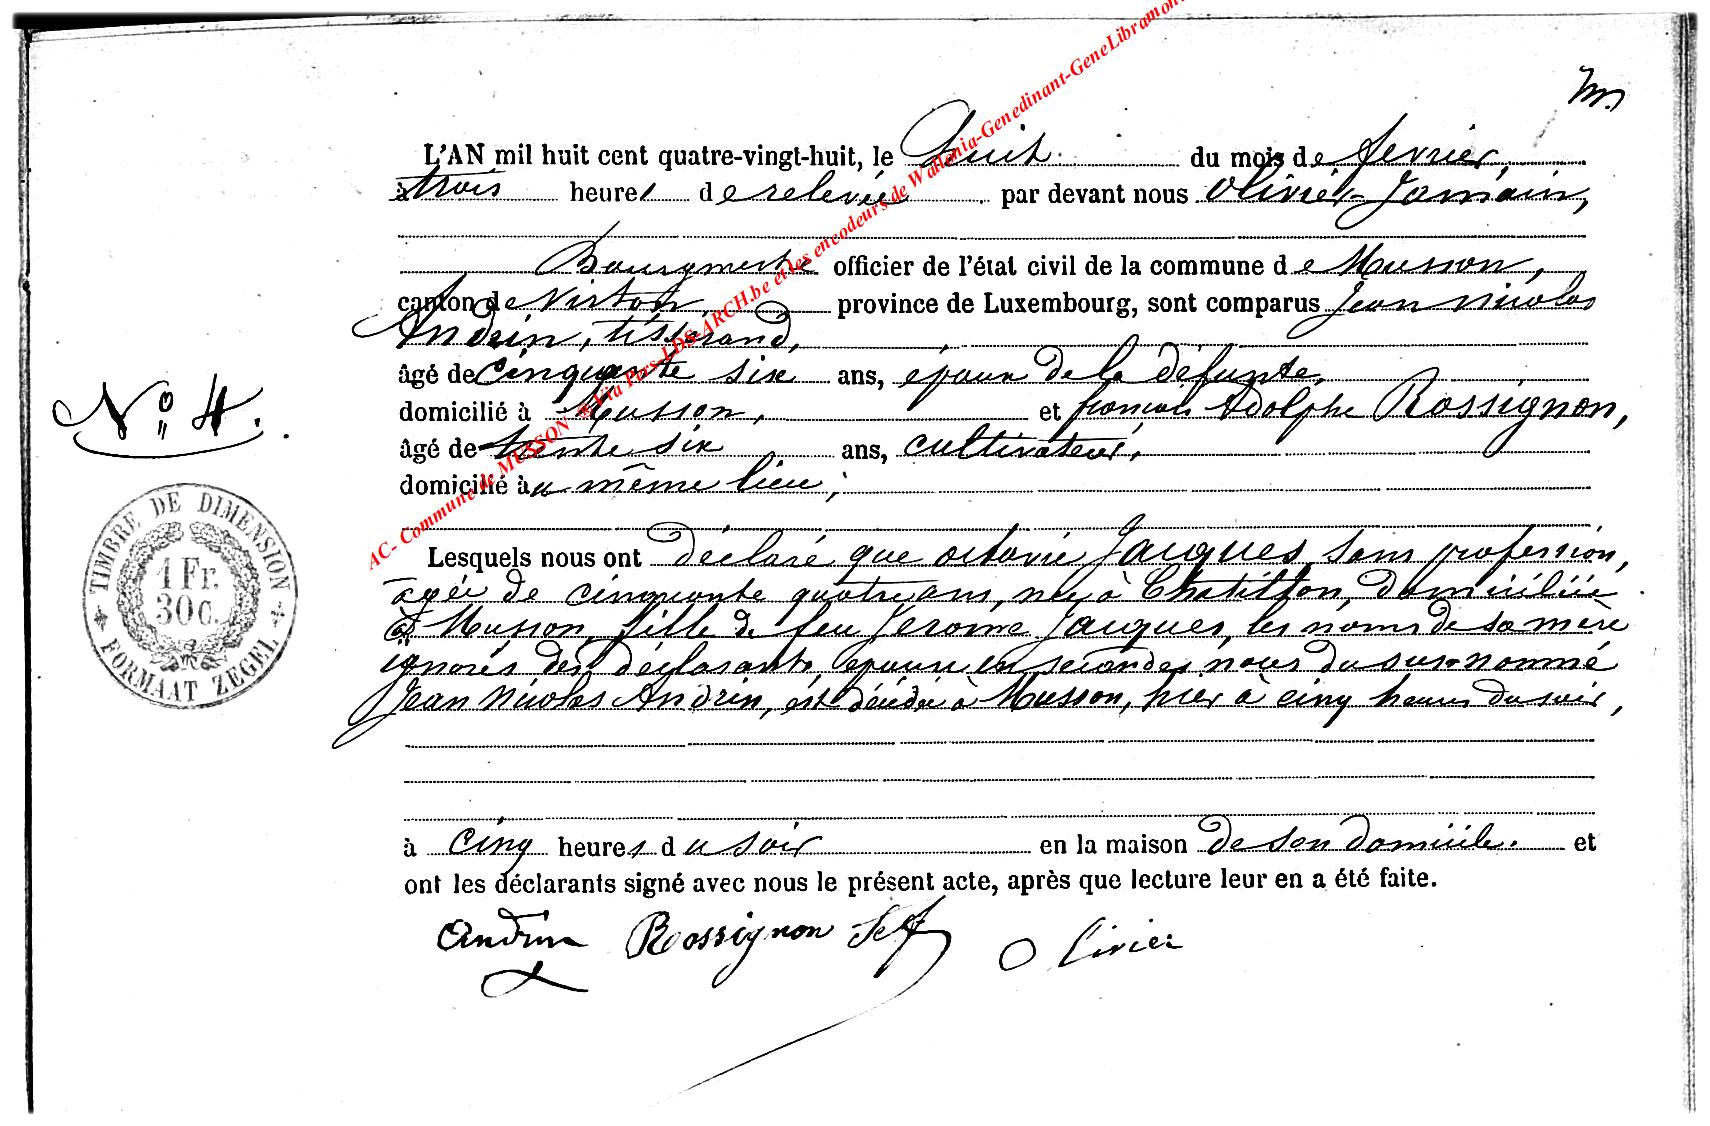 m
L'AN mil huit cent quatre-vingt-huit, le huit du mois de fevrier,
à trois heures de relevée par devant nous Olivier Jamain,
Bourgmestre officier de l'état civil de la commune de Musson,
canton de Virton, province de Luxembourg, sont comparus Jean Nicolas
Andrin, tisserand,
âgé de cinquante six ans, époux de la défunte,
domicilié à Musson, et françois Adolphe Rossignon,
âgé de trente six ans, cultivateur,
domicilié au même lieu ;
Lesquels nous ont déclaré que octavie Jacques, sans profession,
âgée de cinquante quatre ans, née à Chatillon, domiciliée
à Musson, fille de feu Jérome Jacques, les noms de sa mère
ignorés des déclarants, épouse en secondes noces du sus-nommé
Jean Nicolas Andrin, est décédée à Musson, hier à cinq heures du soir,
à cinq heures du soir en la maison de son domicile. et
ont les déclarants signé avec nous le présent acte, après que lecture leur en a été faite.
Andrin Rossignon Olivier
N° 4.
TIMBRE DE DIMENSION
1 Fr.
30 c.
FORMAAT ZEGEL
AC- Commune de MUSSON Via Pers-LDS-ARCH.be et les encodeurs de Wallonia-Genedinant-GeneLibramont